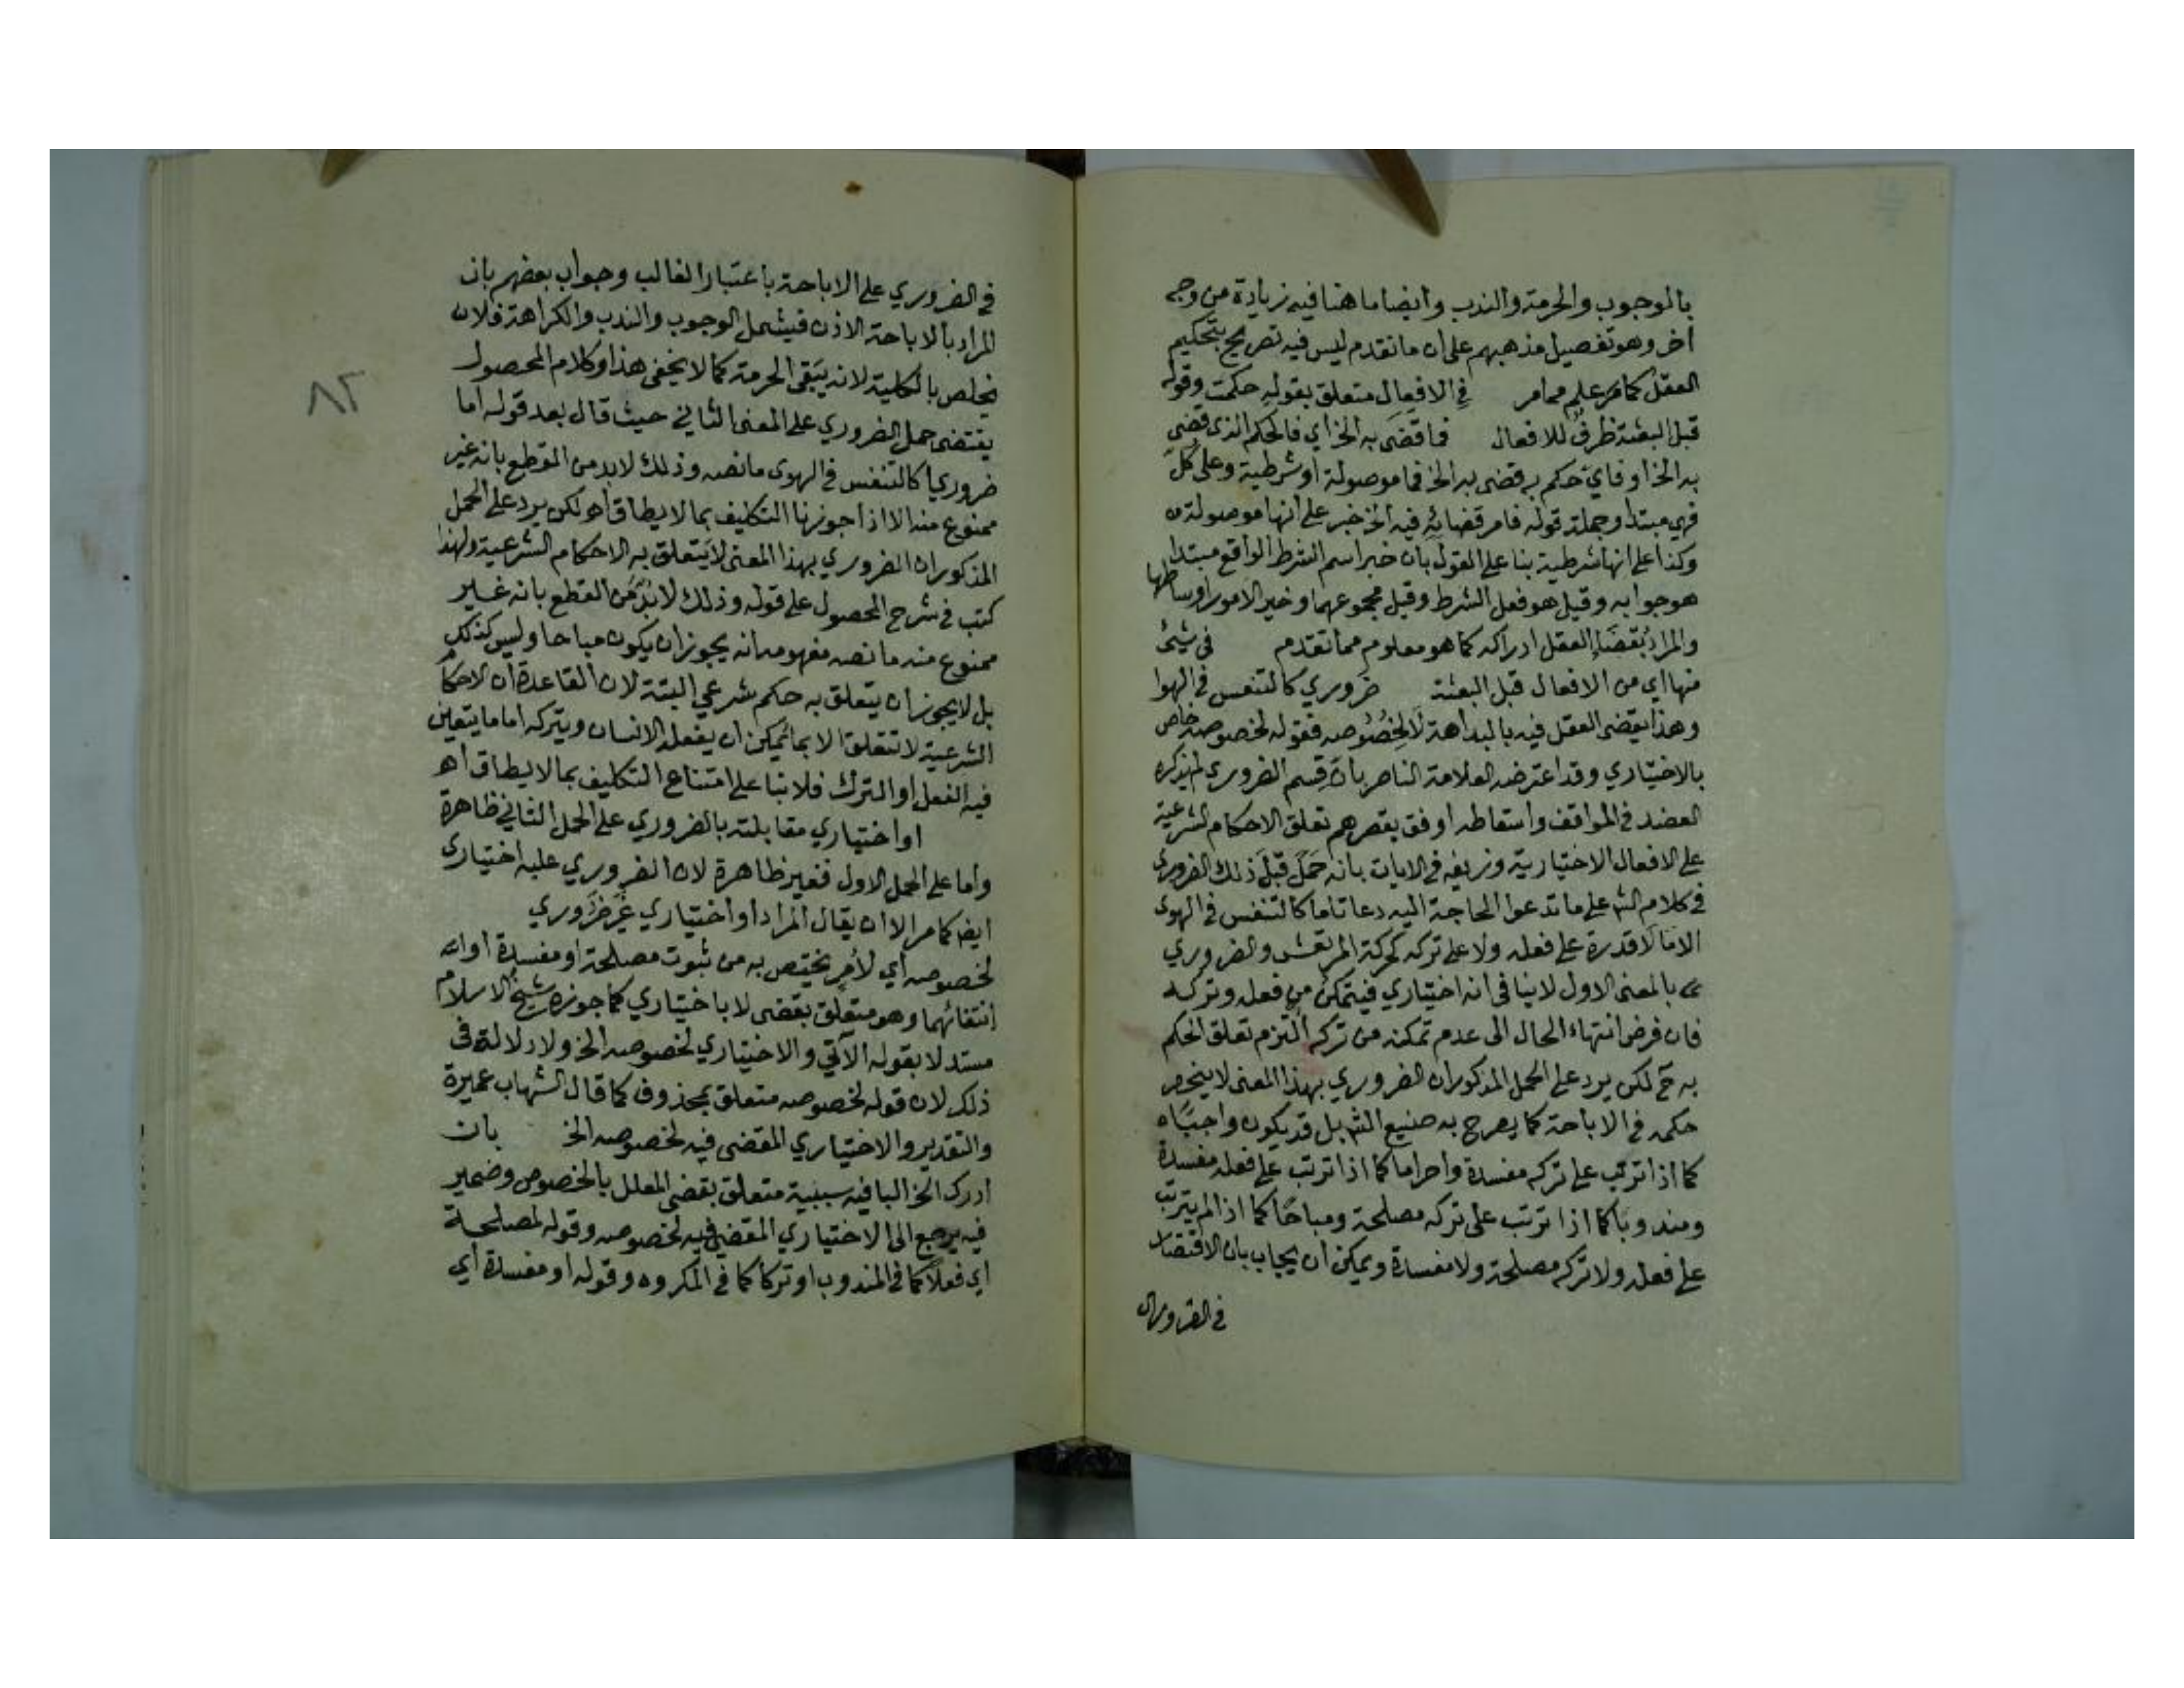 بالوجوب والحرمة والندب وايضا ما هنا فيه زيادة من وجه
اخر وهو تفصيل مذهبهم على ان ما تقدم ليس فيه تصريح بتحكيم
العقل كما مر علم مما مر في الافعال متعلق بقوله حكمت وقوله
قبل البعثة ظرف للافعال فما قضى به الخ اي فالحكم الذي قضى
به الخ او فاي حكم به قضى به الخ فما موصولة او شرطية وعلى كل
فهي مبتدا وجملة قوله فامر قضائه فيه الخ خبر على انها موصولة
وكذا على انها شرطية بنا على القول بان خبر اسم الشرط الواقع مبتدا
هو جوابه وقيل هو فعل الشرط وقيل مجموعهما وخير الامور اوساطها
والمراد بقضاء العقل ادراكه كما هو معلوم مما تقدم في شئ
منها اي من الافعال قبل البعثة ضروري كالتنفس في الهوا
وهذا يقضى العقل فيه بالبداهة لا لخصوصه فقوله لخصوصه خاص
بالاختياري وقد اعترضه العلامة الناصر بان قسم الضروري لم يذكره
العضد في المواقف واسقاطه اوفق بقصرهم تعلق الاحكام الشرعية
على الافعال الاختيارية وزيفه في الايات بانه حمل قبل ذلك الضروري
في كلام الش على ما تدعوا الحاجة اليه دعا تاما كالتنفس في الهوى
الا ما لا قدرة على فعله ولا على تركه كحركة المرتعش والضروري
بالمعنى الاول لا ينافى انه اختياري فيتمكن من فعله وتركه
فان فرض انتهاء الحال الى عدم تمكنه من تركه التزم تعلق الحكم
به ح لكن يرد على الحمل المذكور ان الضروري بهذا المعنى لا ينحصر
حكمه في الاباحة كما يصرح به صنيع الش بل قد يكون واجبا
كما اذا ترتب على تركه مفسدة وا حراما كما اذا ترتب على فعله مفسدة
ومندوبا كما اذا ترتب على تركه مصلحة ومباحا كما اذا لم يترتب
على فعله ولا تركه مصلحة ولا مفسدة ويمكن ان يجاب بان الاقتصار
في الضروري
في الضروري على الاباحة باعتبار الغالب وجواب بعضهم بان
المراد بالاباحة الاذن فيشمل الوجوب والندب والكراهة فلان
يخلص بالكلية لانه يبقى الحرمة كما لا يخفى هذا وكلام المحصول
يقتضى حمل الضروري على المعنى الثاني حيث قال بعد قوله اما
ضروريا كالتنفس في الهوى ما نصه وذلك لابد من القطع بانه غير
ممنوع منه الا اذا جوزنا التكليف بما لا يطاق اه لكن يرد على الحمل
المذكور ان الضروري بهذا المعنى لا يتعلق به الاحكام الشرعية ولهذا
كتب في شرح المحصول على قوله وذلك لابد من القطع بانه غير
ممنوع منه ما نصه مفهومه انه يجوز ان يكون مباحا وليس كذلك
بل لا يجوز ان يتعلق به حكم شرعي البتة لان القاعدة ان الاحكام
الشرعية لا تتعلق الا بما يمكن ان يفعله الانسان ويتركه اما ما يتعين
فيه الفعل او الترك فلا بنا على امتناع التكليف بما لا يطاق اه
او اختياري مقابلته بالضروري على الحمل الثاني ظاهرة
واما على الحمل الاول فغير ظاهرة لان الضروري عليه اختياري
ايضا كما مر الا ان يقال المراد او اختياري غير ضروري
لخصوصه اي لامر يختص به من ثبوت مصلحة او مفسدة او
انتفائهما وهو متعلق بقضى لا باختياري كما جوزه شيخ الاسلام
مستدلا بقوله الآتي والاختياري لخصوصه الخ ولا دلالة في
ذلك لان قوله لخصوصه متعلق بمحذوف كما قال الشهاب عميرة
والتقدير والاختياري المقضى فيه لخصوصه الخ بان
ادرك الخ البا فيه سببية متعلق بقضى المعلل بالخصوص وضمير
فيه يرجع الى الاختياري المقضى فيه لخصوصه وقوله لمصلحة
اي فعلا كما في المندوب او تركا كما في المكروه وقوله او مفسدة اي
٨٢